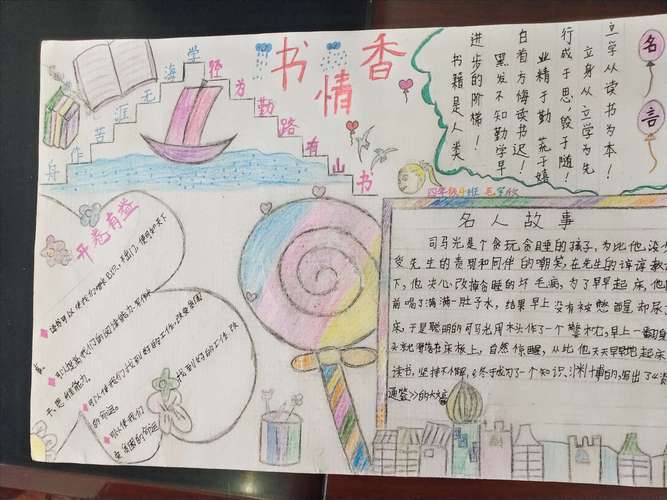 书情香
书山有路勤为径
学海无涯苦作舟
名言
书籍是人类
进步的阶梯!
黑发不知勤学早
白首方悔读书迟!
业精于勤 荒于嬉
行成于思,毁于随!
立身从立学为先
立学从读书为本!
四年级
开卷有益
读书可以使我们增长见识,不出门,便可知天下
可以提高我们的阅读能力、写作
能力
可以使我们找到好的工作,改变
的命运
名人故事
司马光是个贪玩贪睡的孩子,为此他没少
受先生的责罚和同伴的嘲笑,在先生的谆谆教
下,他决心改掉贪睡的坏毛病,为了早早起床,他
前喝了满满一肚子水,结果早上没有被憋醒却尿
床,于是聪明的司马光用木头作了一个警枕,早上一翻身
头就滑落在床板上,自然惊醒,从此他天天早早地起床
读书,坚持不懈,终于成为了一个知识渊博的,写出了《资
通鉴》的大文豪